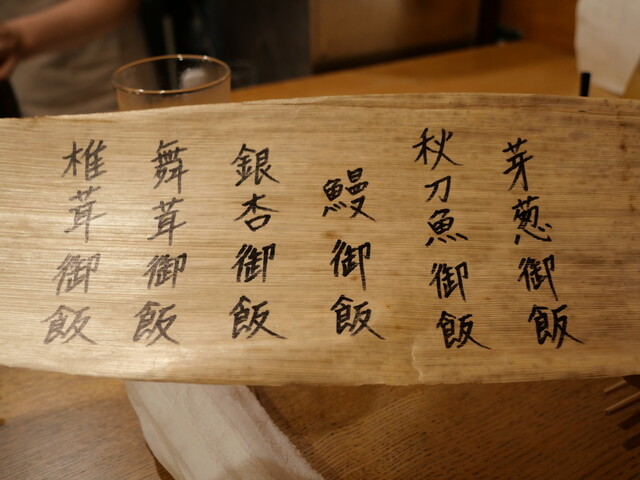 芽葱御飯
秋刀魚御飯
鰻御飯
銀杏御飯
舞茸御飯
椎茸御飯